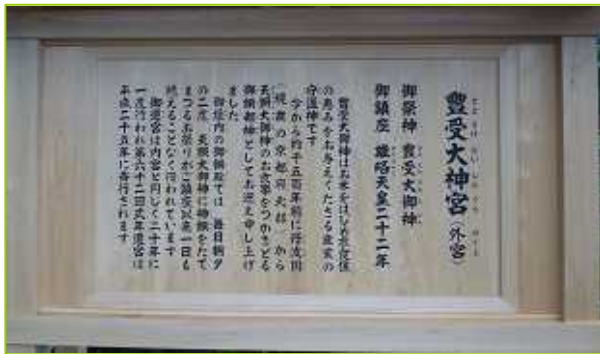 豊受大神宮（外宮）
御祭神　豊受大御神
御鎮座　雄略天皇二十二年
豊受大御神はお米をはじめ衣食住
の恵みをお与えくださる産業の
守護神です
今から約千五百年前に丹波国
（現在の京都府北部）から
天照大御神のお食事をつかさどる
御饌都神としてお迎え申し上げ
ました
御垣内の御饌殿では　毎日朝夕
の二度　天照大御神に神饌をたて
まつるお祭りがご鎮座以来一日も
絶えることなく行われています
御遷宮は内宮と同じく二十年に
一度行われ第六十二回式年遷宮は
平成二十五年に斎行されます